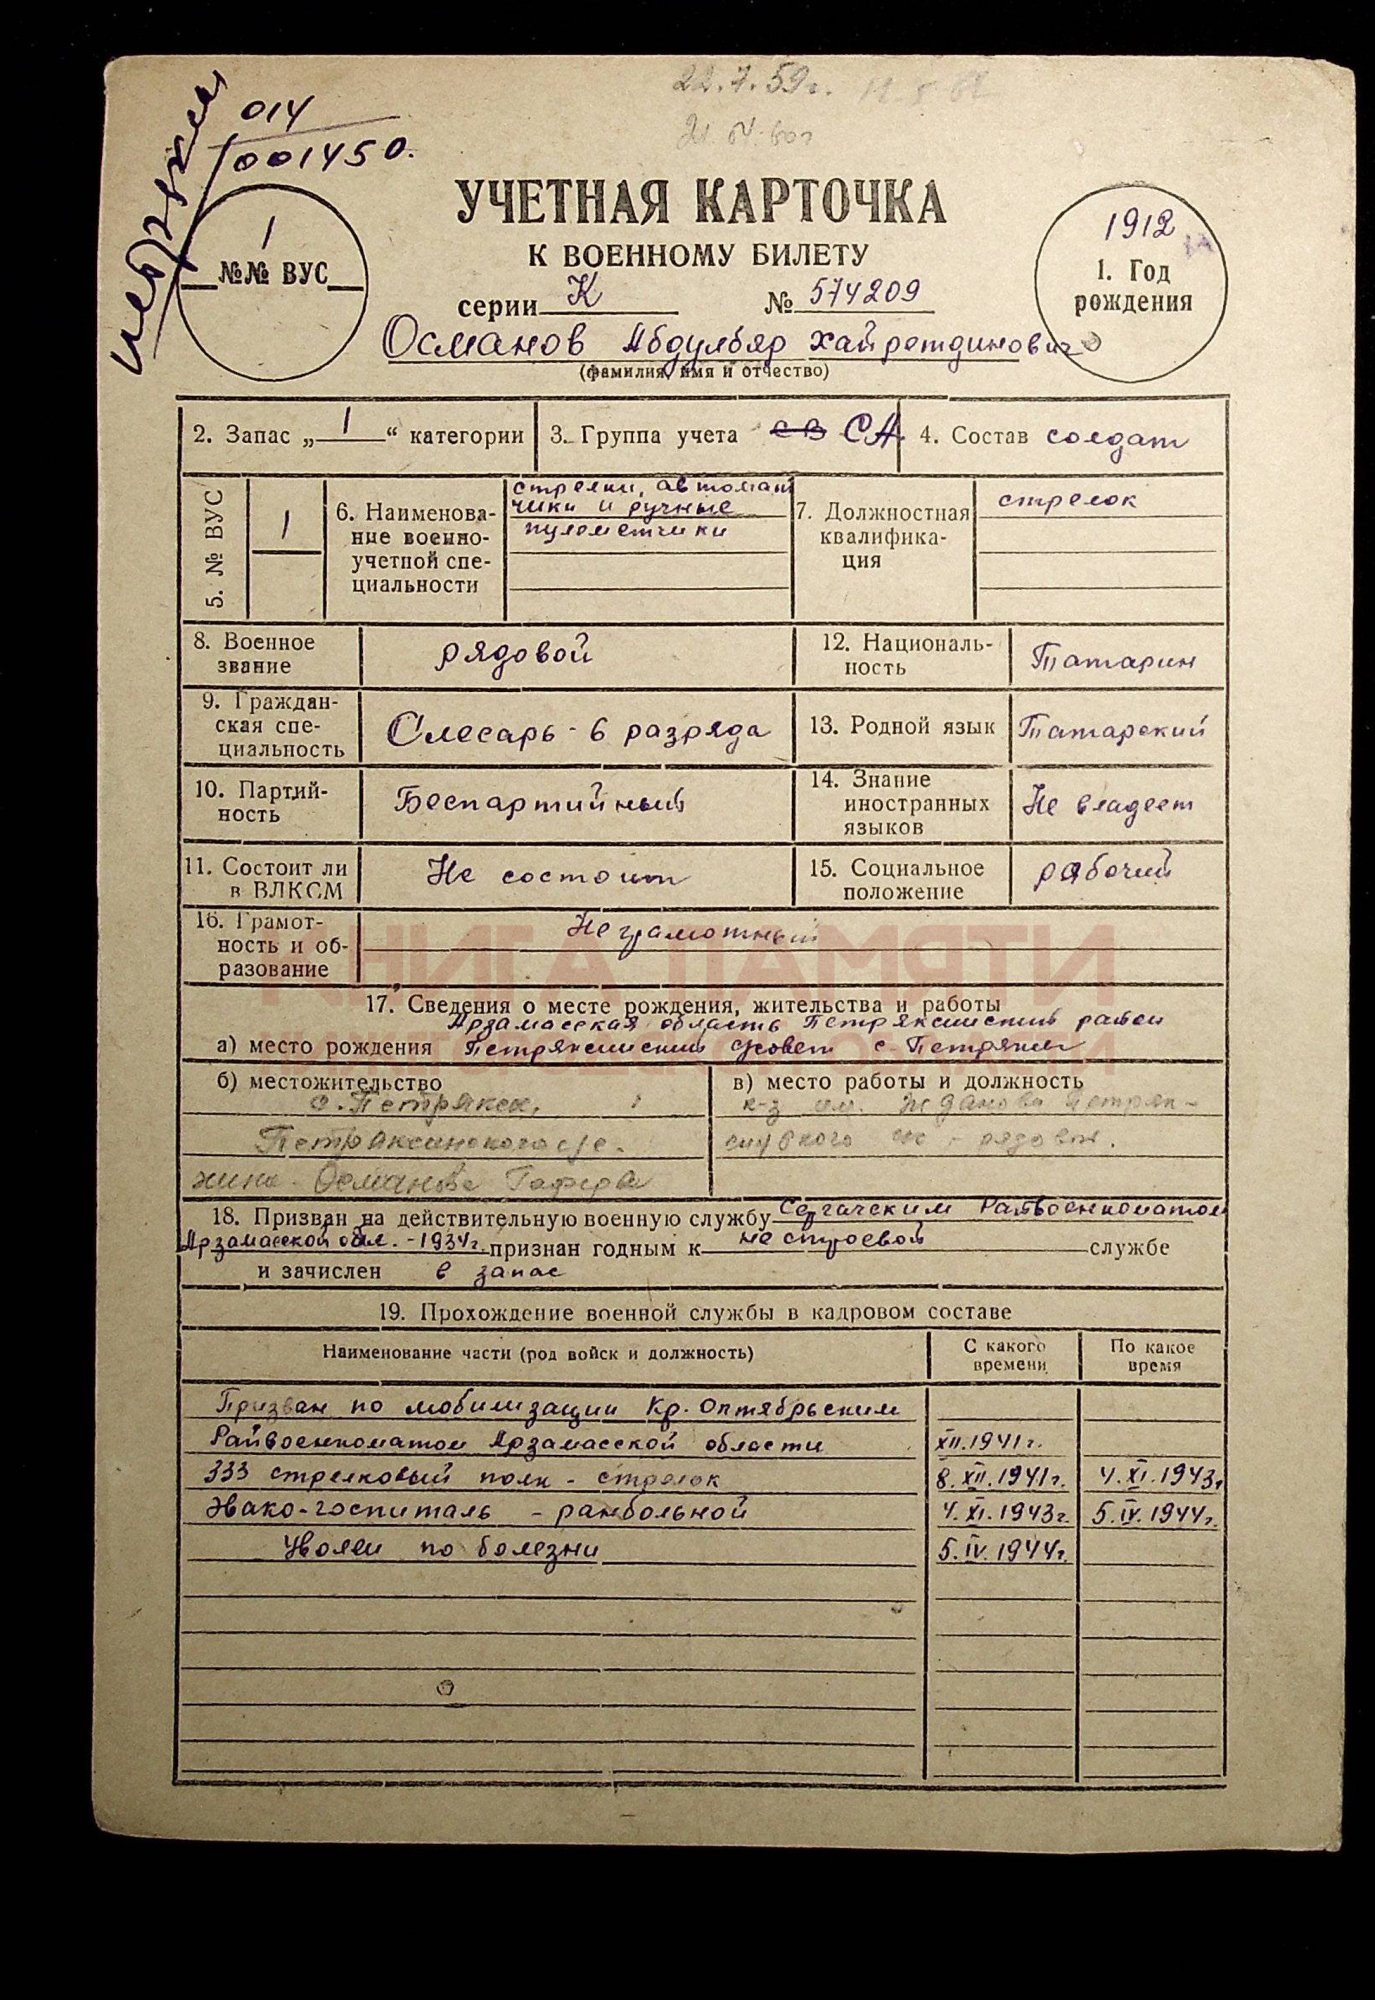 22.7.59г.
014
001450.
УЧЕТНАЯ КАРТОЧКА
К ВОЕННОМУ БИЛЕТУ
серии К № 574209
1
№№ ВУС
1912
1. Год
рождения
Османов Абдулбяр Хайретдинович
(фамилия, имя и отчество)
2. Запас „ 1 “ категории
3. Группа учета СВ СА.
4. Состав солдат
5. № ВУС
1
6. Наименова-
ние военно-
учетной спе-
циальности
стрелки, автомат
чики и ручные
пулеметчики
7. Должностная
квалифика-
ция
стрелок
8. Военное
звание
рядовой
12. Националь-
ность
Татарин
9. Граждан-
ская спе-
циальность
Слесарь - 6 разряда
13. Родной язык
Татарский
10. Партий-
ность
Беспартийный
14. Знание
иностранных
языков
Не владеет
11. Состоит ли
в ВЛКСМ
Не состоит
15. Социальное
положение
рабочий
16. Грамот-
ность и об-
разование
Неграмотный
КНИГА ПАМЯТИ
17. Сведения о месте рождения, жительства и работы
Арзамасская область Петряксинский район
а) место рождения Петряксинский совет с Петряксы
б) местожительство
с. Петрякси,
Петряксинского с/с.
жена - Османова
в) место работы и должность
к-з им. Жданова Петряк-
синского с/с - рядовой.
18. Призван на действительную военную службу Сергачским Райвоенкоматом
Арзамасской обл. - 1934г. признан годным к нестроевой службе
и зачислен в запас
19. Прохождение военной службы в кадровом составе
Наименование части (род войск и должность)
С какого
времени
По какое
время
Призван по мобилизации Кр. Октябрьским
Райвоенкоматом Арзамасской области XII.1941г.
333 стрелковый полк - стрелок 8.XII.1941г. 4.XI.1943г
Эвако-госпиталь - ранбольной 4.XI.1943г. 5.IV.1944г.
Уволен по болезни 5.IV.1944г.